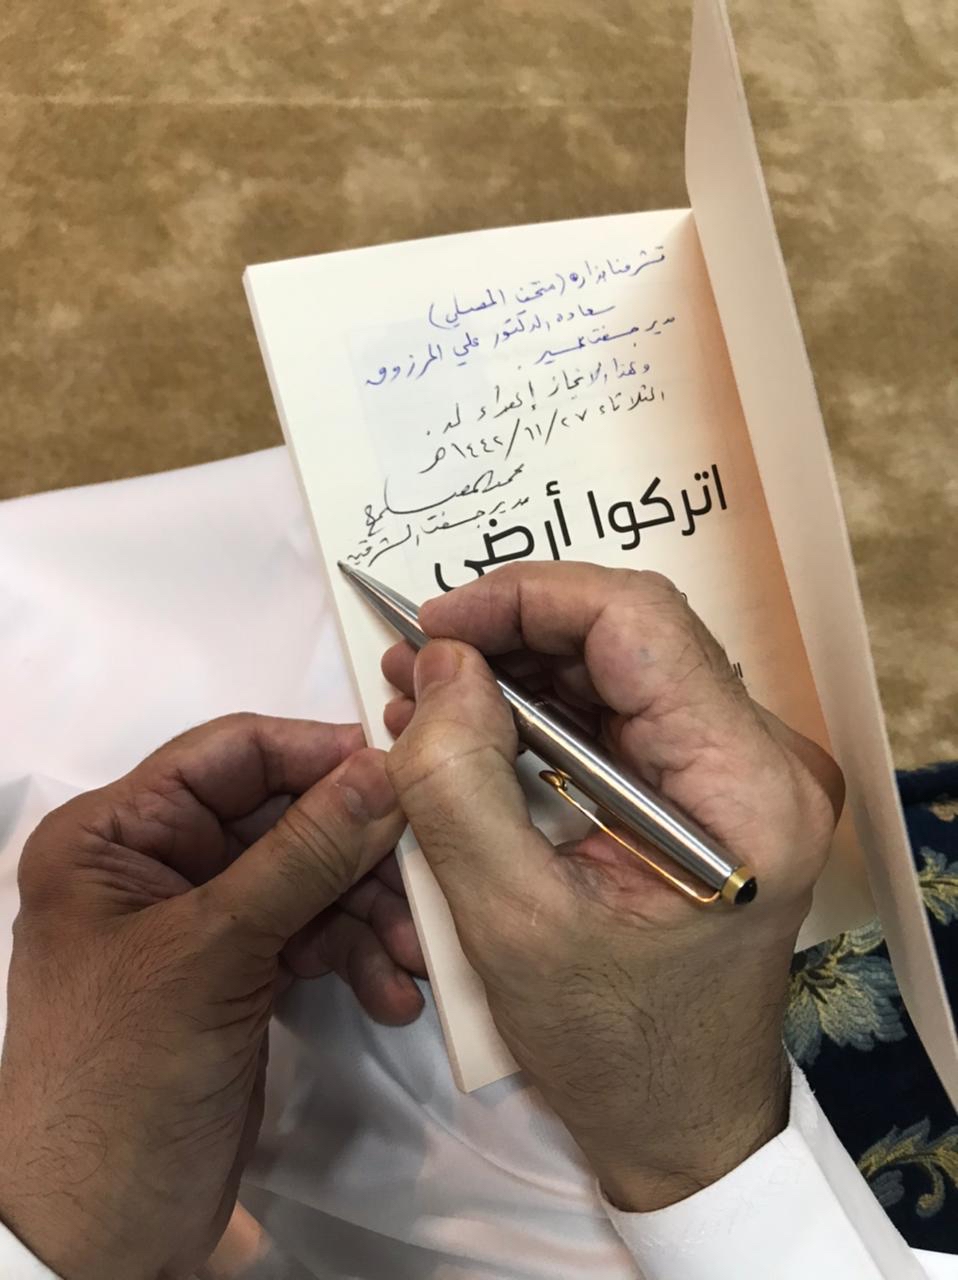 تشرفنا بزاره (متحف المصلي)
سعاده الدكتور علي المرزوق
مدير جسفت عسير.
وهذا الانجاز إهداء له.
الثلاثاء ٢٧/١١/١٤٤٢هـ
محمد المصلي
مدير جسفت الشرقيه
اتركوا أرضي